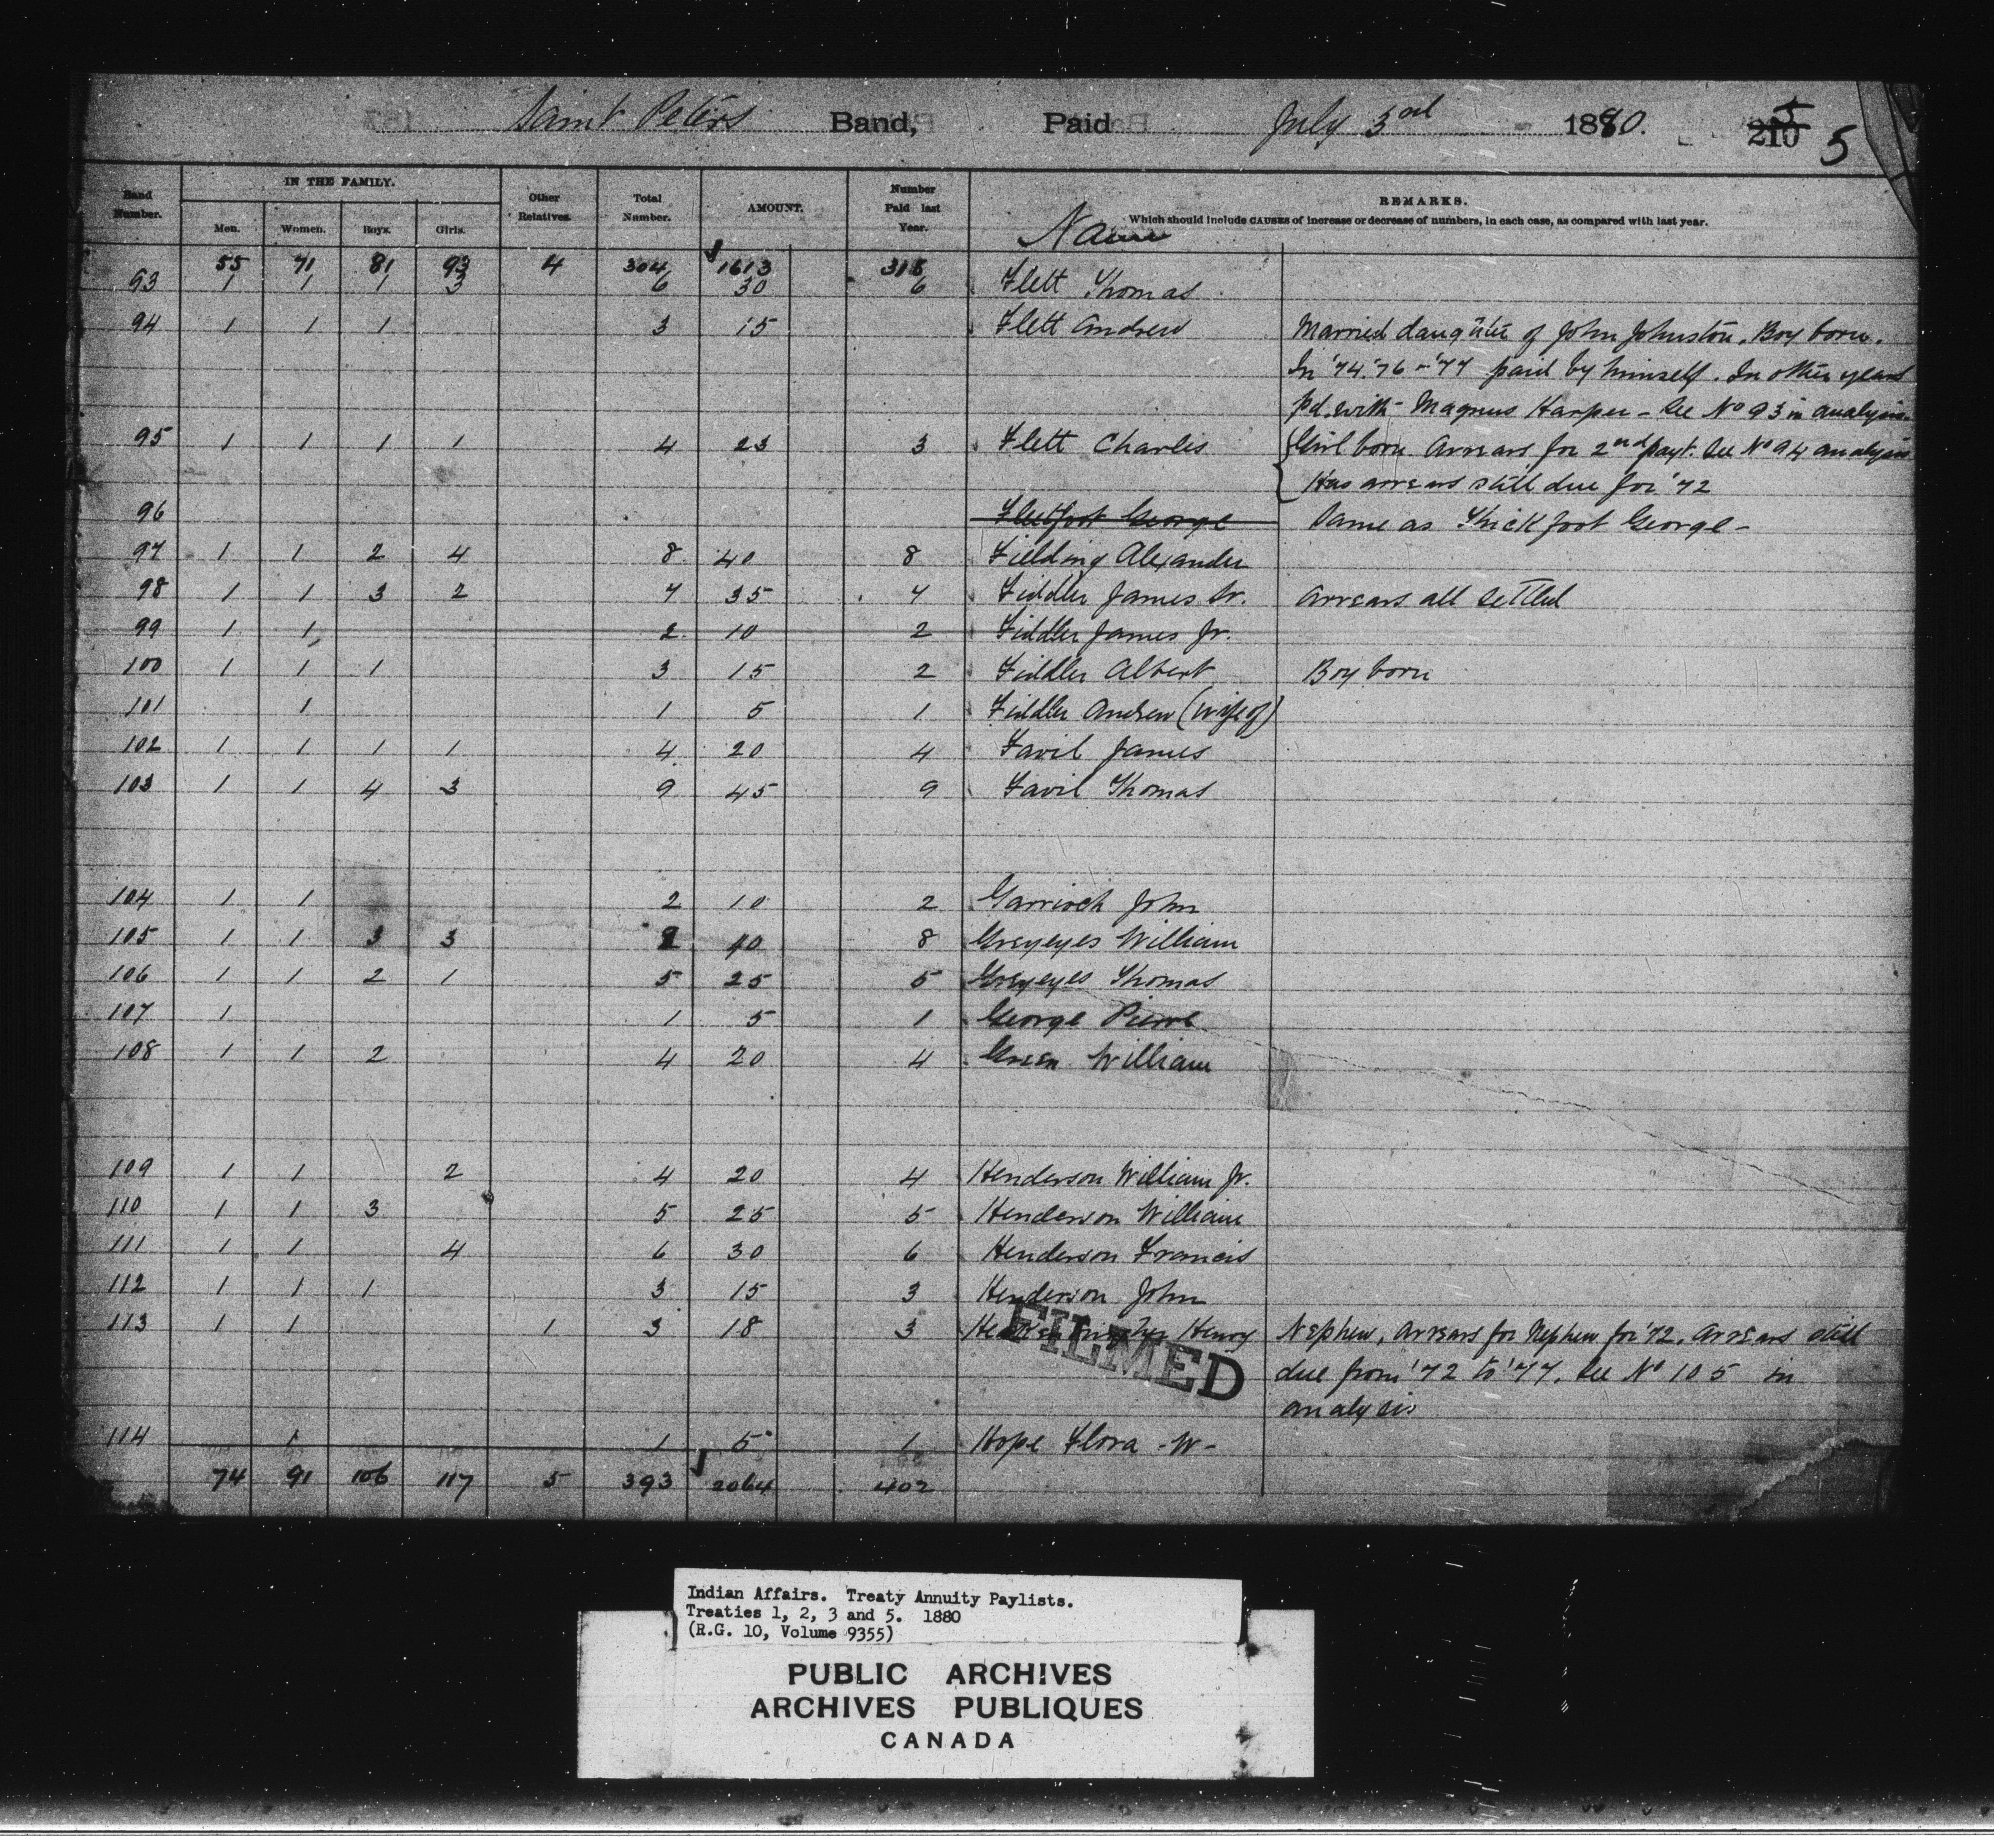 Saint Peters Band, Paid July 3rd 1880. 210 5 5
Band Number. IN THE FAMILY. Men. Women. Boys. Girls. Other Relatives. Total Number. AMOUNT. Number Paid last Year. Name REMARKS.
Which should include CAUSES of increase or decrease of numbers, in each case, as compared with last year.
55 71 81 93 4 304 1613 315
93 1 1 1 3 6 30 6 Flett Thomas
94 1 1 1 3 15 Flett Andrew Married daughter of John Johnston. Boy born.
In '74. '76 - '77 paid by himself. In other years
pd. with Magnus Harper - See No 93 in analysis.
95 1 1 1 1 4 23 3 Flett Charles Girl born Arrears for 2nd payt. See No 94 analysis
Has arrears still due for '72
96 Fleetfoot George Same as Thickfoot George -
97 1 1 2 4 8 40 8 Fielding Alexander
98 1 1 3 2 7 35 7 Fiddler James Sr. Arrears all settled
99 1 1 2 10 2 Fiddler James Jr.
100 1 1 1 3 15 2 Fiddler Albert Boy born
101 1 1 5 1 Fiddler Andrew (wife of)
102 1 1 1 1 4 20 4 Favil James
103 1 1 4 3 9 45 9 Favil Thomas
104 1 1 2 10 2 Garrioch John
105 1 1 3 3 8 40 8 Greyeyes William
106 1 1 2 1 5 25 5 Greyeyes Thomas
107 1 1 5 1 George Pierre
108 1 1 2 4 20 4 Green William
109 1 1 2 4 20 4 Henderson William Jr.
110 1 1 3 5 25 5 Henderson William
111 1 1 4 6 30 6 Henderson Francis
112 1 1 1 3 15 3 Henderson John
113 1 1 1 3 18 3 Henry Nephew, Arrears for Nephew for '72. Arrears still
FILMED
due from '72 to '77. See No 105 in
analysis
114 1 1 5 1 Hope Flora - W -
74 91 106 117 5 393 2064 402
Indian Affairs. Treaty Annuity Paylists.
Treaties 1, 2, 3 and 5. 1880
(R.G. 10, Volume 9355)
PUBLIC ARCHIVES
ARCHIVES PUBLIQUES
CANADA